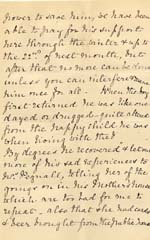 power to save him, we have been
able to pay for his support
here through the winter & up to
the 22nd of next month, but
after that no more can be done
unless you can interfere & save
him once for all - When the boy
first returned he was like one
dazed or drugged - quite altered
from the happy child he was
when living with me
By degrees he recovered & let out
more of his sad experiences to
telling her of the
goings on in his Mother's House
which are too bad for me to
repeat - also that she had wine
& beer brought from the Public House